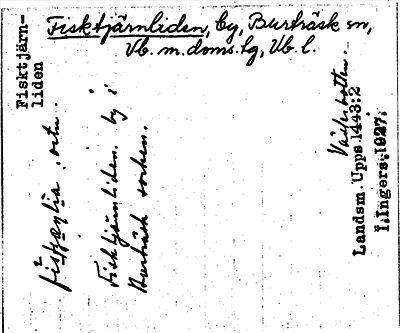 Fisktjärnliden, by, Burträsk sn,
Vb. m. doms. tg, Vb. l.
Fisktjärn-
liden
ortn.
Fisktjärnliden. by i
Burträsk socken.
Västerbotten.
Landsm. Upps. 1443:2
I. Ingers. 1927.